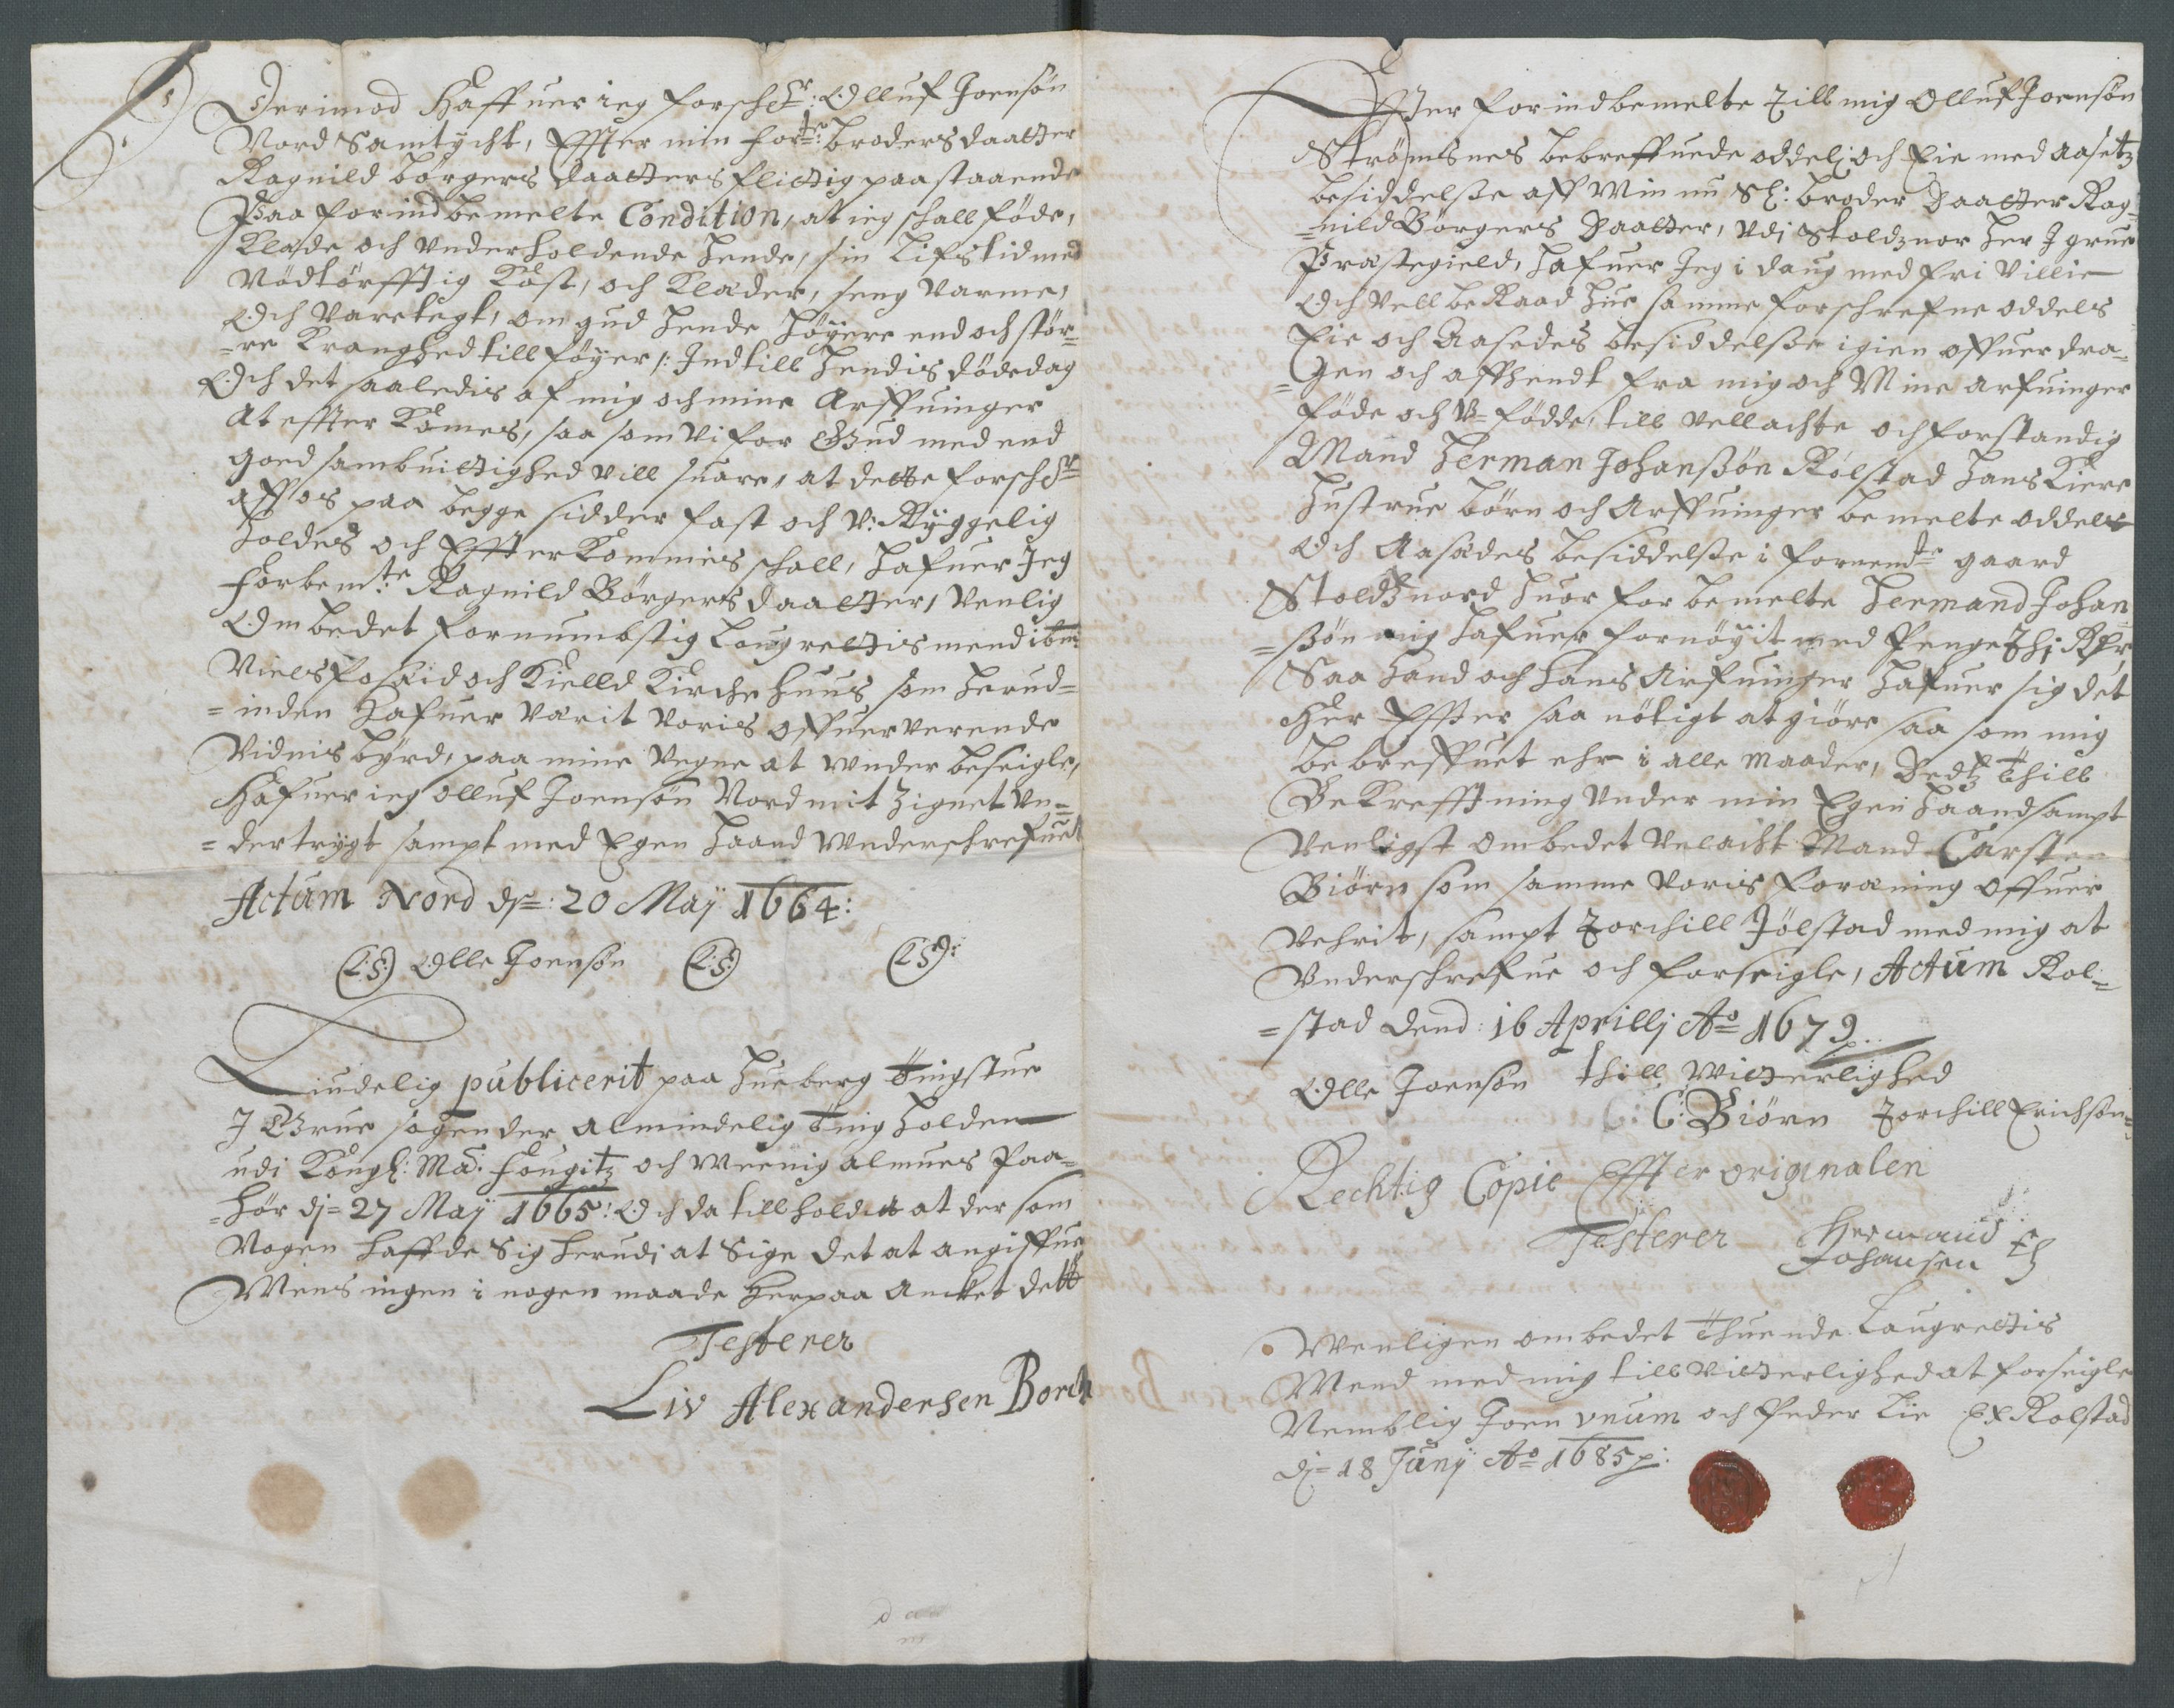 Derimod Haffuer ieg forschr: Olluf Joensøn
Nord Samtÿcht, Effter min forte: broders daatter
Ragnild børgers daatters flittig paastaaende
Paa forindbemelte Condition, at ieg schall føde,
Klæde och underholdende hende, sin Lifstid med
Nødtørfftig Kost, och Klæder, seng varme,
Och varetegt, om gud hende høÿere end och stør-
=re Kranghed tillføÿer /: Indtill hendis dødedag
Och det saaledis af mig och mine Arffuinger
At effter Komes, saa som Vi for Gud med end
goed sambuittighed vill suare, at dette forschr
aff os paa begge sidder fast och V: Rÿggelig
holdes och Effter Kommis schall, hafuer Jeg
forbemte Ragnild Børgers daatter, venlig
Ombedet fornumbstig Laugrettismend ibm:
Niels Poskid och Kielld Kirchehuus som herud-
=inden hafuer værit voris offuerverende
Vidnisbÿrd, paa mine vegne at under beseigle,
Hafuer ieg Olluf Joensøn Nord mit Zignet un-
=dertrÿgt sampt med Egen haand Underschrefuet
Actum Nord dn: 20 Maÿ 1664:
(L:S:) Olle Joensøn (L:S:) (L:S):
Liudelig publicerit paa Hueberg tingstue
J Grue sogen der almindelig ting holden
udi Kongl: Ma: fougitz och Meenig almues Paa-
=hør dj= 27 Maÿ 1665: Och da tillholdet at der som
Nogen haffde Sig herudj at Sige det at angiffue
Mens ingen i nogen maade herpaa Ancket dette
Testerer
Liv Alexandersen Borch
Effter forindbemelte till mig Olluf Joensøn
Strømsnes bebreffuede oddelj och Eie med aasetz
besiddelsse aff Min nu Sl: broder Daatter Rag-
=nild Børgers Daatter, Udj Stoldznor her J grue
Præstegield, hafuer Jeg i daug med fri Villie
Och vell beraad hue samme forschrefne oddels
Eie och Aasedes besiddelsse igien offuerdra-
=gen och affhendt fra mig och Mine arfuinger
føde och U-fødde, till vellachte och forstandig
Mand Herman Johanssøn Rolstad hans Kiere
hustrue børn och Arffuinger bemelte oddels
Och Aasædes besiddelsse i fornemte gaard
Stoldznord huor forbemelte Hermand Johan
=ssøn mig hafuer fornøÿit med Penge Rdr
Saa hand och hans Arfuinger hafuer sig det
Her Effter saa nøtigt at giøre saa som mig
bebreffuet ehr i alle maader, Dedtz thill
Bekrefftning under min Egen haand sampt
Venligst ombedet velacht Mand Carsten
Biørn som samme voris foræning offuer
Vehrit, sampt Torchill Jølstad med mig at
Underschrefue och forseigle, Actum Rol-
=stad dend: 16 Aprillj Ao 1679
Olle Joensøn thill Witterlighed
C: Biørn Torchill Erichsøn
Rechtig Copie Effter originalen
Testerer Hermand
Johansen
Wenligen ombedet thuende Laugrettis
Mend med mig till vitterlighed at forseigle
Nemblig Joen vnum och Peder Lie Ex Rolstad
dj= 18 Junÿ Ao 1685